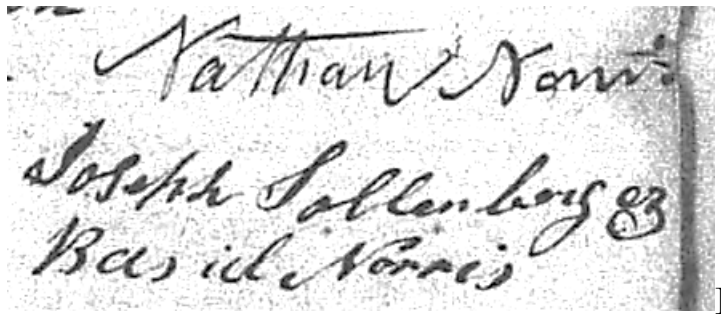 Nathan Norris
Joseph Sollenberger
Basil Norris